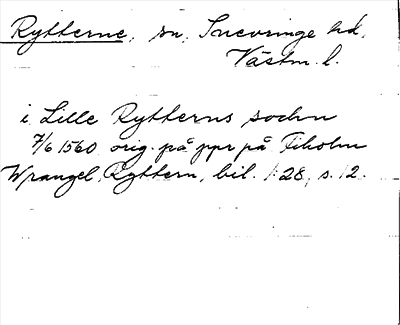 Rytterne, sn, Snevringe hd,
Västm. l.
i Lille Rytterns sochn
7/6 1560 orig. på ppr på Tiholm
Wrangel, Ryttern, bil. 1:28, s. 12.